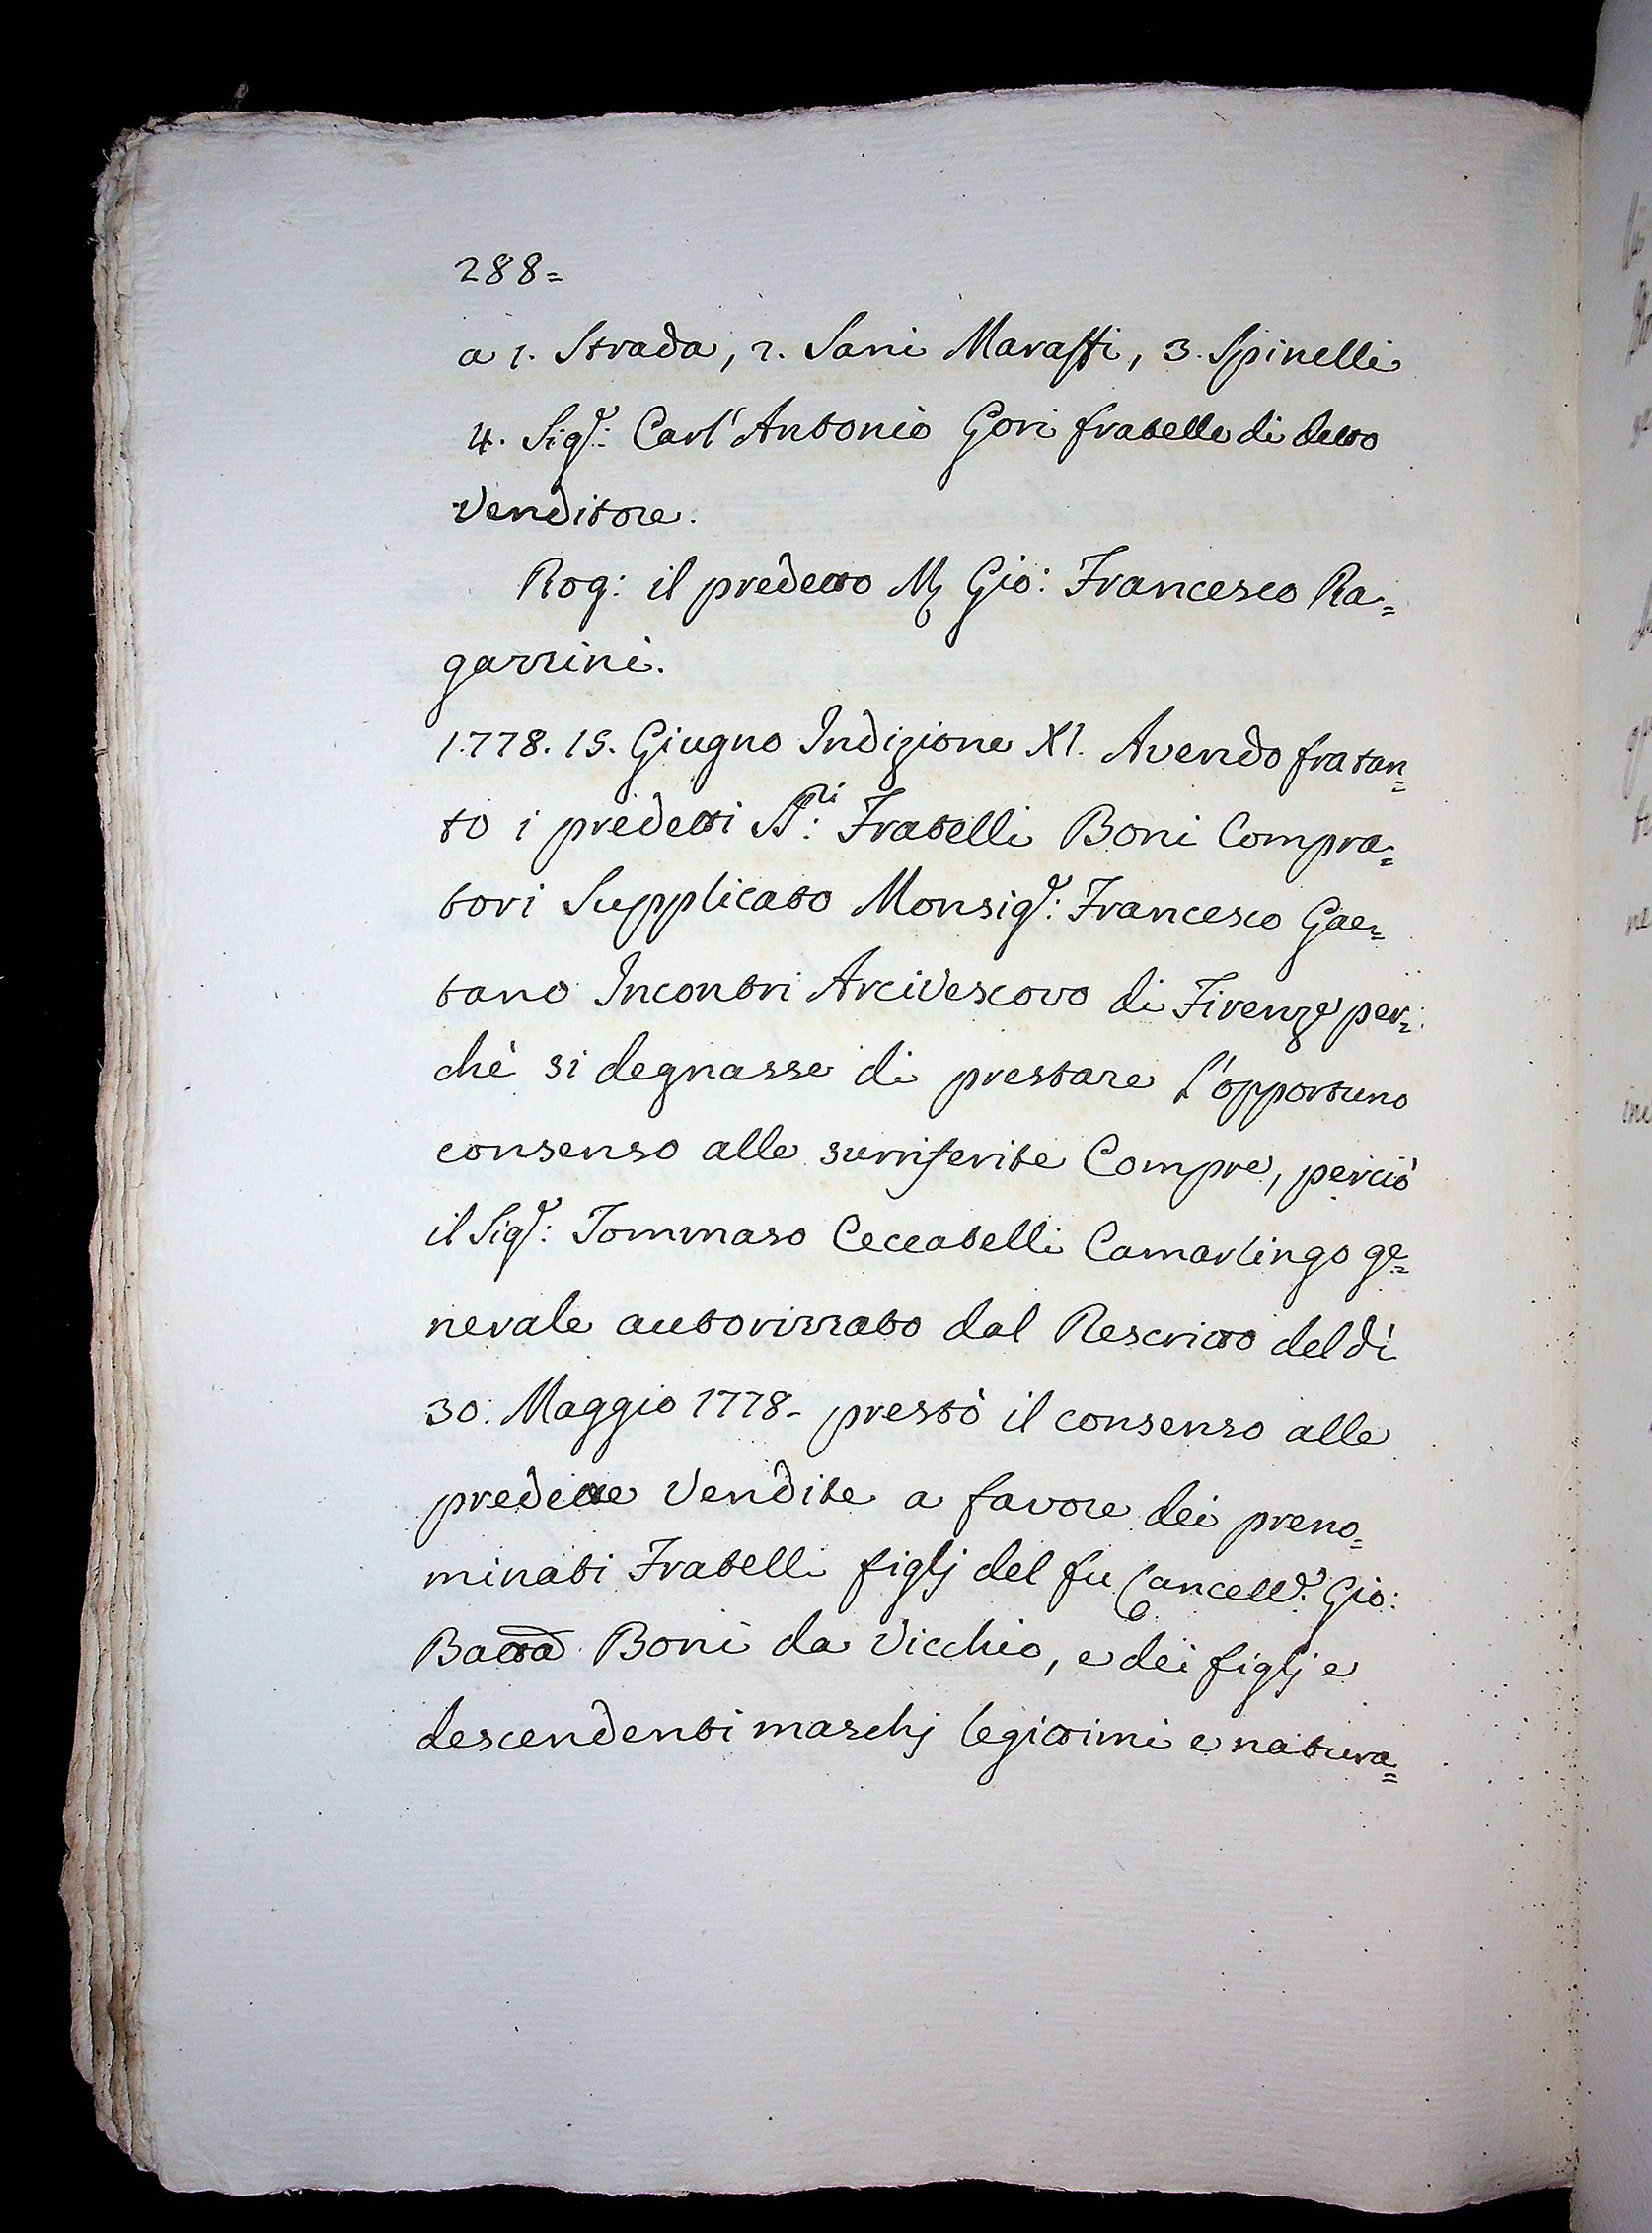 288=
a 1. Strada, 2. Sani Maraffi, 3. Spinelli
4. Sig.r: Carl'Antonio Gori fratello di detto
Venditore.
Rog: il predetto Mr Gio: Francesco Ra=
gazzini.
1778. 15. Giugno Indizione XI. Avendo fratan=
to i predetti SS.ri: Fratelli Boni Compra=
tori Supplicato Monsig.r: Francesco Gae=
tano Incontri Arcivescovo di Firenze per=
chè si degnasse di prestare l'opportuno
consenso alle surriferite Compre, perciò
il Sig.r: Tommaso Ceccatelli Camarlingo ge=
nerale autorizzato dal Rescritto del dì
30. Maggio 1778- prestò il consenso alle
predette Vendite a favore dei preno=
minati Fratelli figlj del fu Cancell.e: Gio:
Batta Boni da Vicchio, e dei figlj e
descendenti maschj legittimi e natura=